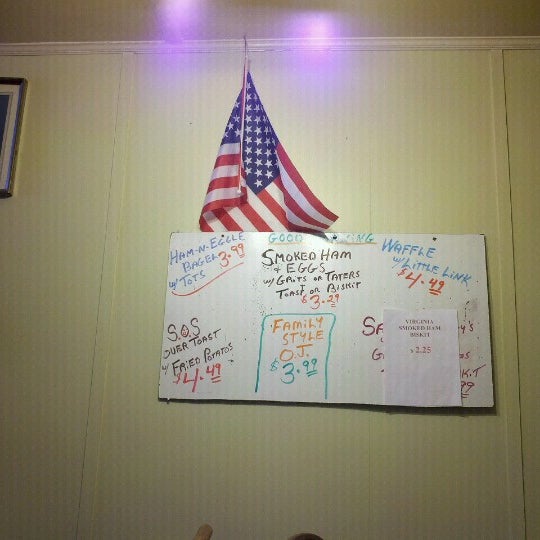 GOOD
HAM-N-EGGLE
BAGEL 3.99
W/ TOTS
SMOKED HAM
& EGGS
W/ GRITS OR TATERS
TOAST OR BISKIT
$3.29
WAFFLE
W/ LITTLE LINK
$4.49
S.O.S
OVER TOAST
W/ FRIED POTATOS
$4.49
FAMILY
STYLE
O.J.
$3.99
VIRGINIA
SMOKED HAM
BISKIT
$2.25